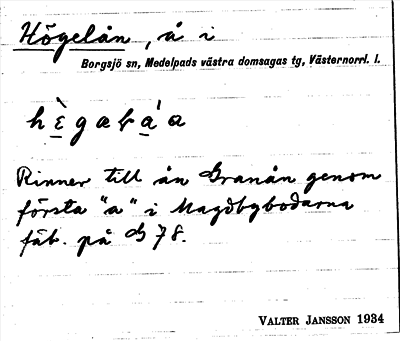 Högelån, å i
Borgsjö sn, Medelpads västra domsagas tg, Västernorrl. l.
Rinner till ån Granån genom
första "a" i Magdbybodarna
fäb. på G 78.
VALTER JANSSON 1934